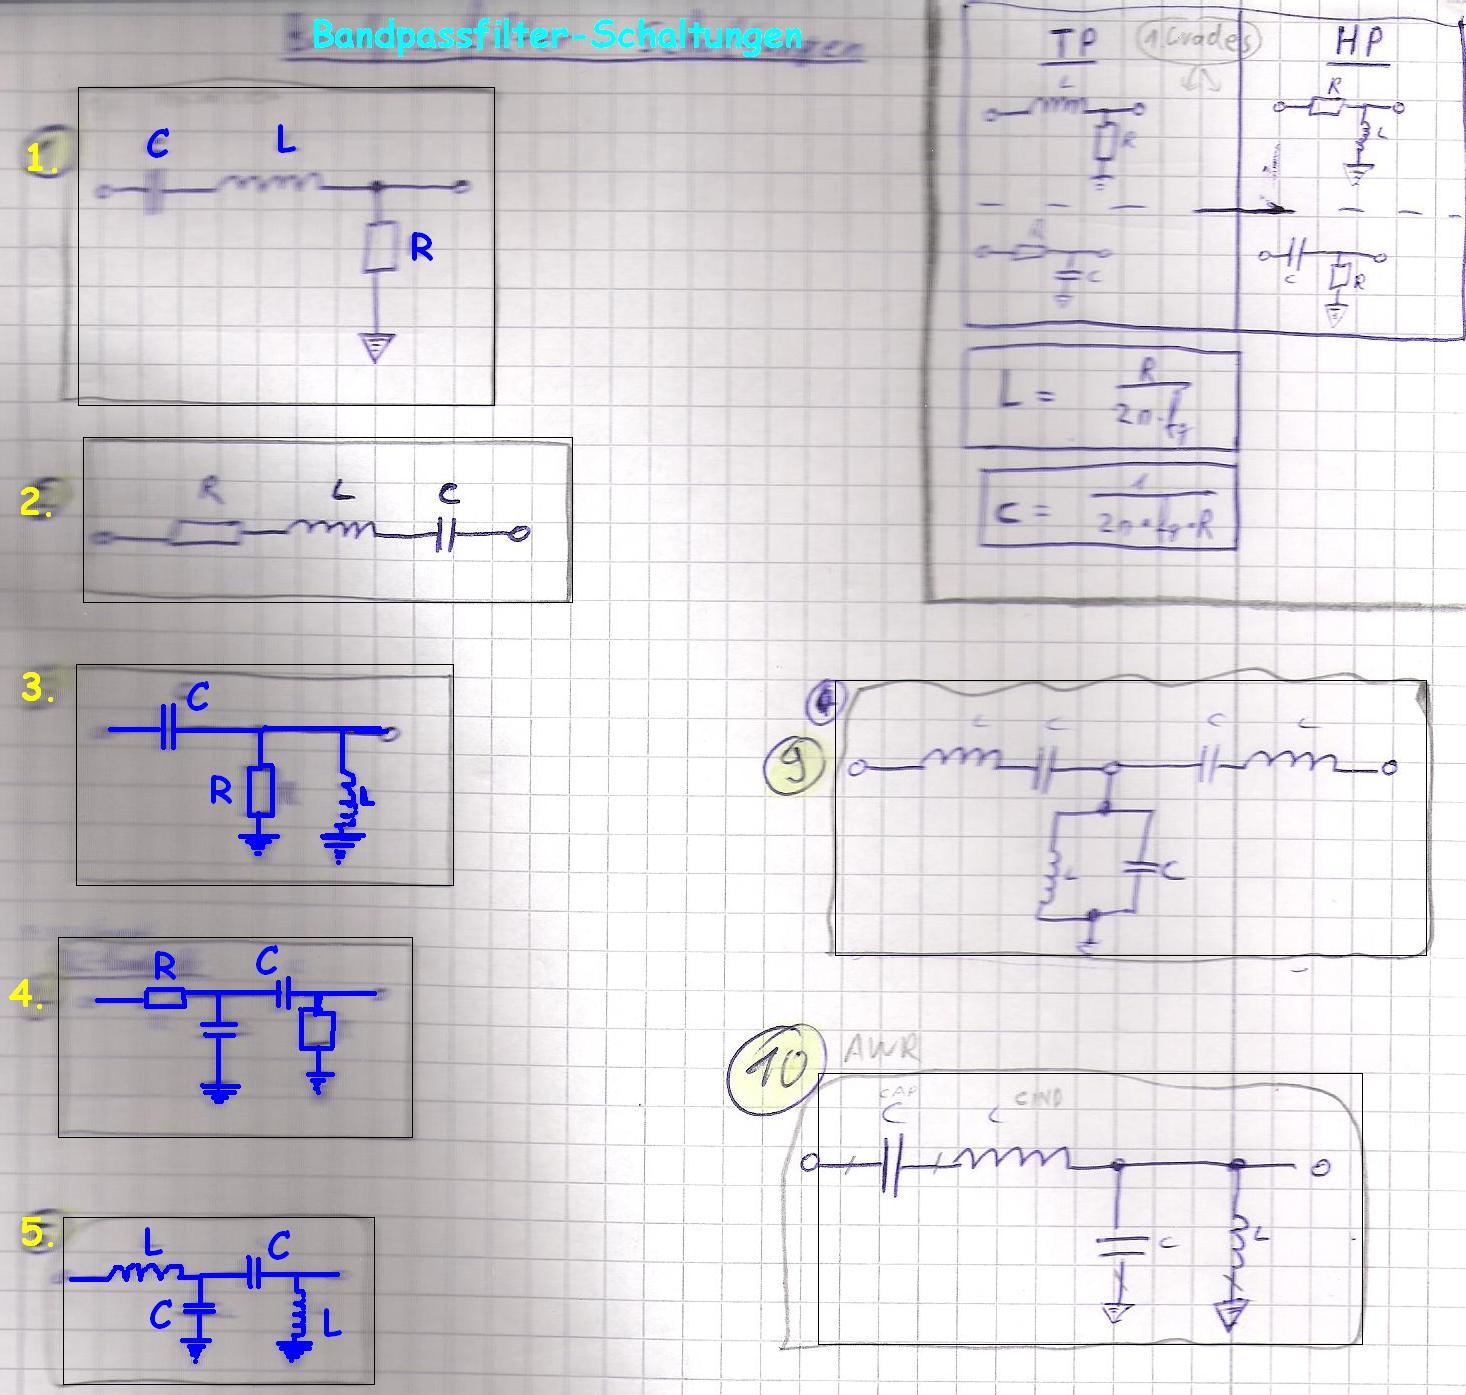 Bandpassfilter-Schaltungen
1.
C L
R
2.
R L C
3.
C
R L
4.
R C
5.
L C
C L
TP 1. Grades HP
L
R
R
L
R
C
C
R
L = R / 2π·fg
C = 1 / 2π·fg·R
9
L C C L
L C
10 AWR
CAP CIND
C L
C L